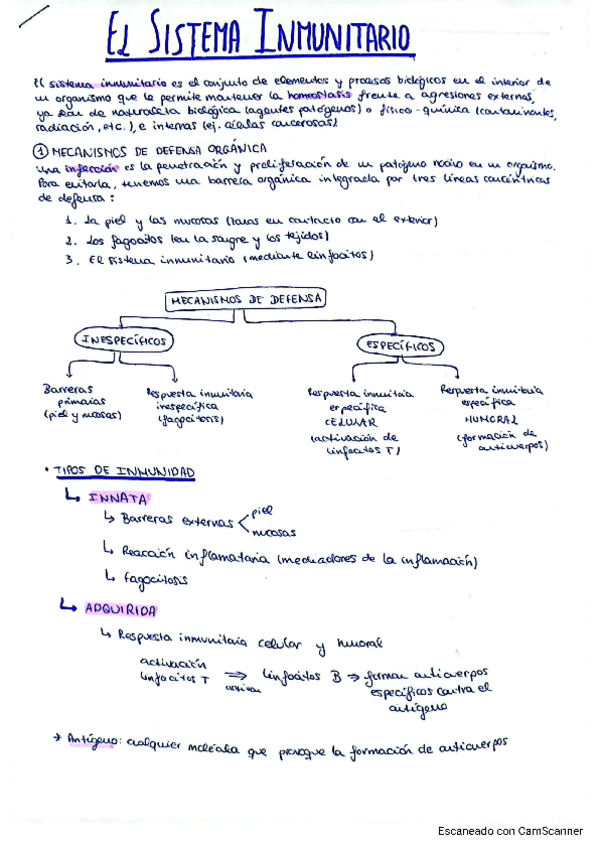 EL SISTEMA INMUNITARIO
El sistema inmunitario es el conjunto de elementos y procesos biológicos en el interior de
un organismo que le permite mantener la homeostasis frente a agresiones externas,
ya sean de naturaleza biológica (agentes patógenos) o físico-química (contaminantes,
radiación, etc.), e internas (ej. células cancerosas)
① MECANISMOS DE DEFENSA ORGÁNICA
Una infección es la penetración y proliferación de un patógeno nocivo en un organismo.
Para evitarla, tenemos una barrera orgánica integrada por tres líneas concéntricas
de defensa:
1. La piel y las mucosas (zonas en contacto con el exterior)
2. Los fagocitos (en la sangre y los tejidos)
3. El sistema inmunitario (mediante linfocitos)
MECANISMOS DE DEFENSA
INESPECÍFICOS
ESPECÍFICOS
Barreras
primarias
(piel y mucosas)
Respuesta inmunitaria
inespecífica
(fagocitosis)
Respuesta inmunitaria
específica
CELULAR
(activación de
linfocitos T)
Respuesta inmunitaria
específica
HUMORAL
(formación de
anticuerpos)
• TIPOS DE INMUNIDAD
↳ INNATA
↳ Barreras externas < piel
mucosas
↳ Reacción inflamatoria (mediadores de la inflamación)
↳ Fagocitosis
↳ ADQUIRIDA
↳ Respuesta inmunitaria celular y humoral
activación
linfocitos T ⇒ linfocitos B ⇒ forman anticuerpos
activan
específicos contra el
antígeno
* Antígeno: cualquier molécula que provoque la formación de anticuerpos
Escaneado con CamScanner